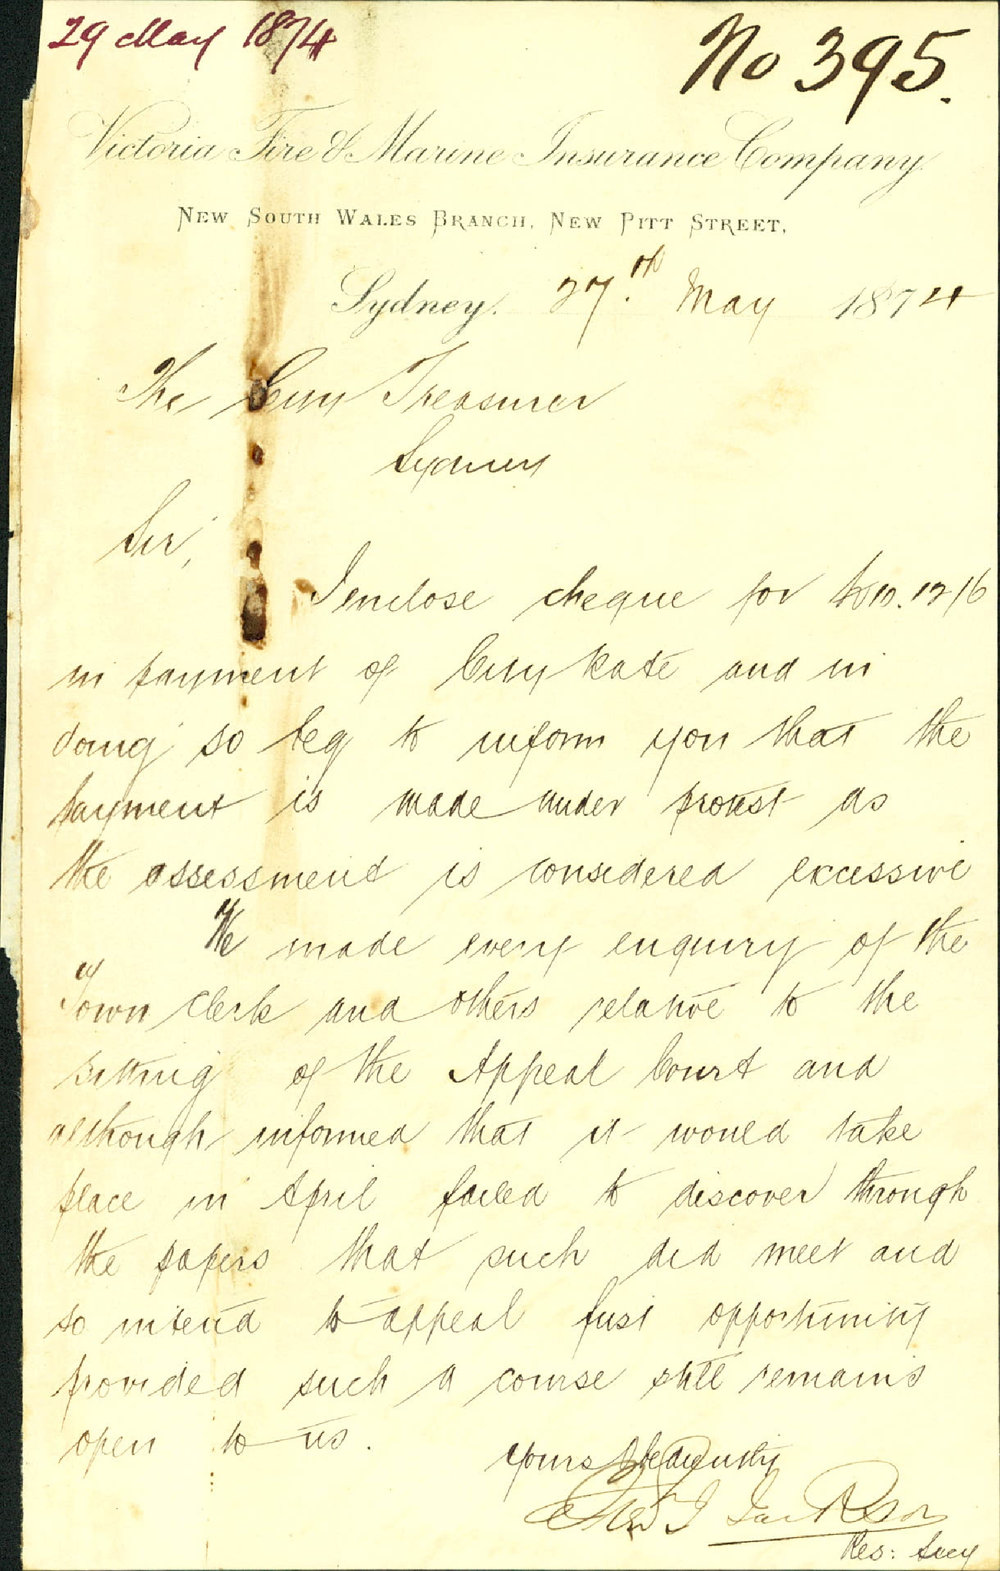 29 May 1874
No 395.
Victoria Fire & Marine Insurance Company
New South Wales Branch, New Pitt Street,
Sydney. 27th May 1874
The City Treasurer
Sydney
Sir,
I enclose cheque for
in payment of City Rate and in
doing so beg to inform you that the
payment is made under protest as
the assessment is considered excessive
We made every enquiry of the
Town Clerk and others relative to the
sitting of the Appeal Court and
although informed that it would take
place in April failed to discover through
the papers that such did meet and
so intend to appeal first opportunity
provided such a course still remains
open to us.
Yours obediently
Jackson
Res: Secy